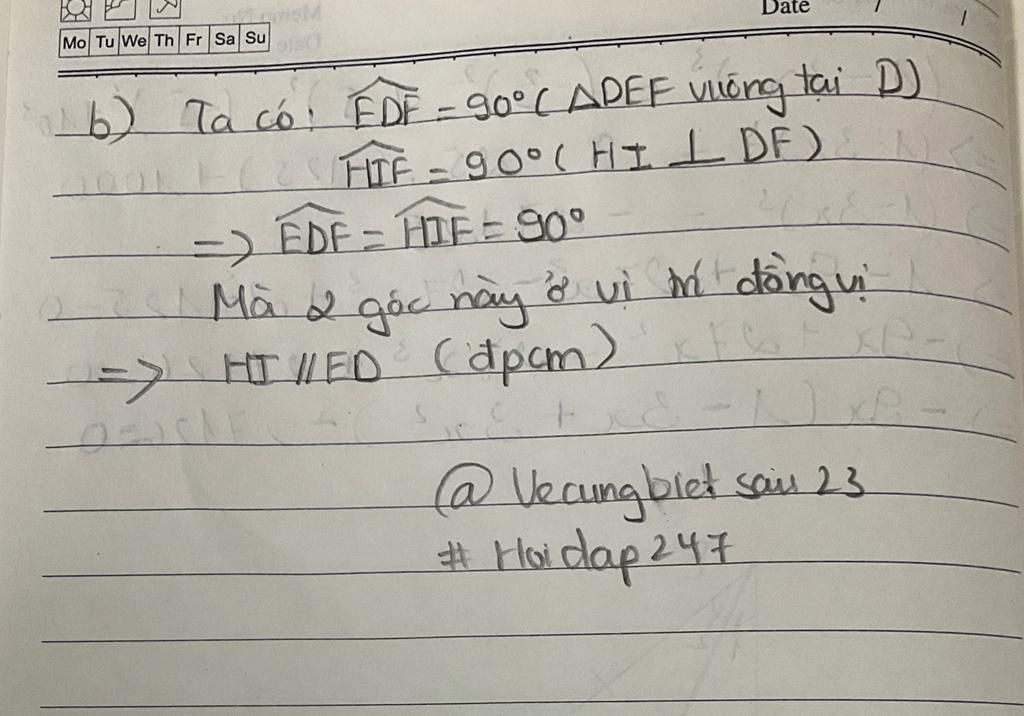 Date / /
Mo Tu We Th Fr Sa Su
b) Ta có: EDF = 90° (ΔDEF vuông tại D)
HIF = 90° (HI ⊥ DF)
=> EDF = HIF = 90°
Mà 2 góc này ở vị trí đồng vị
=> HI // ED (đpcm)
@ Vecungbiet sau 23
# Hoidap247